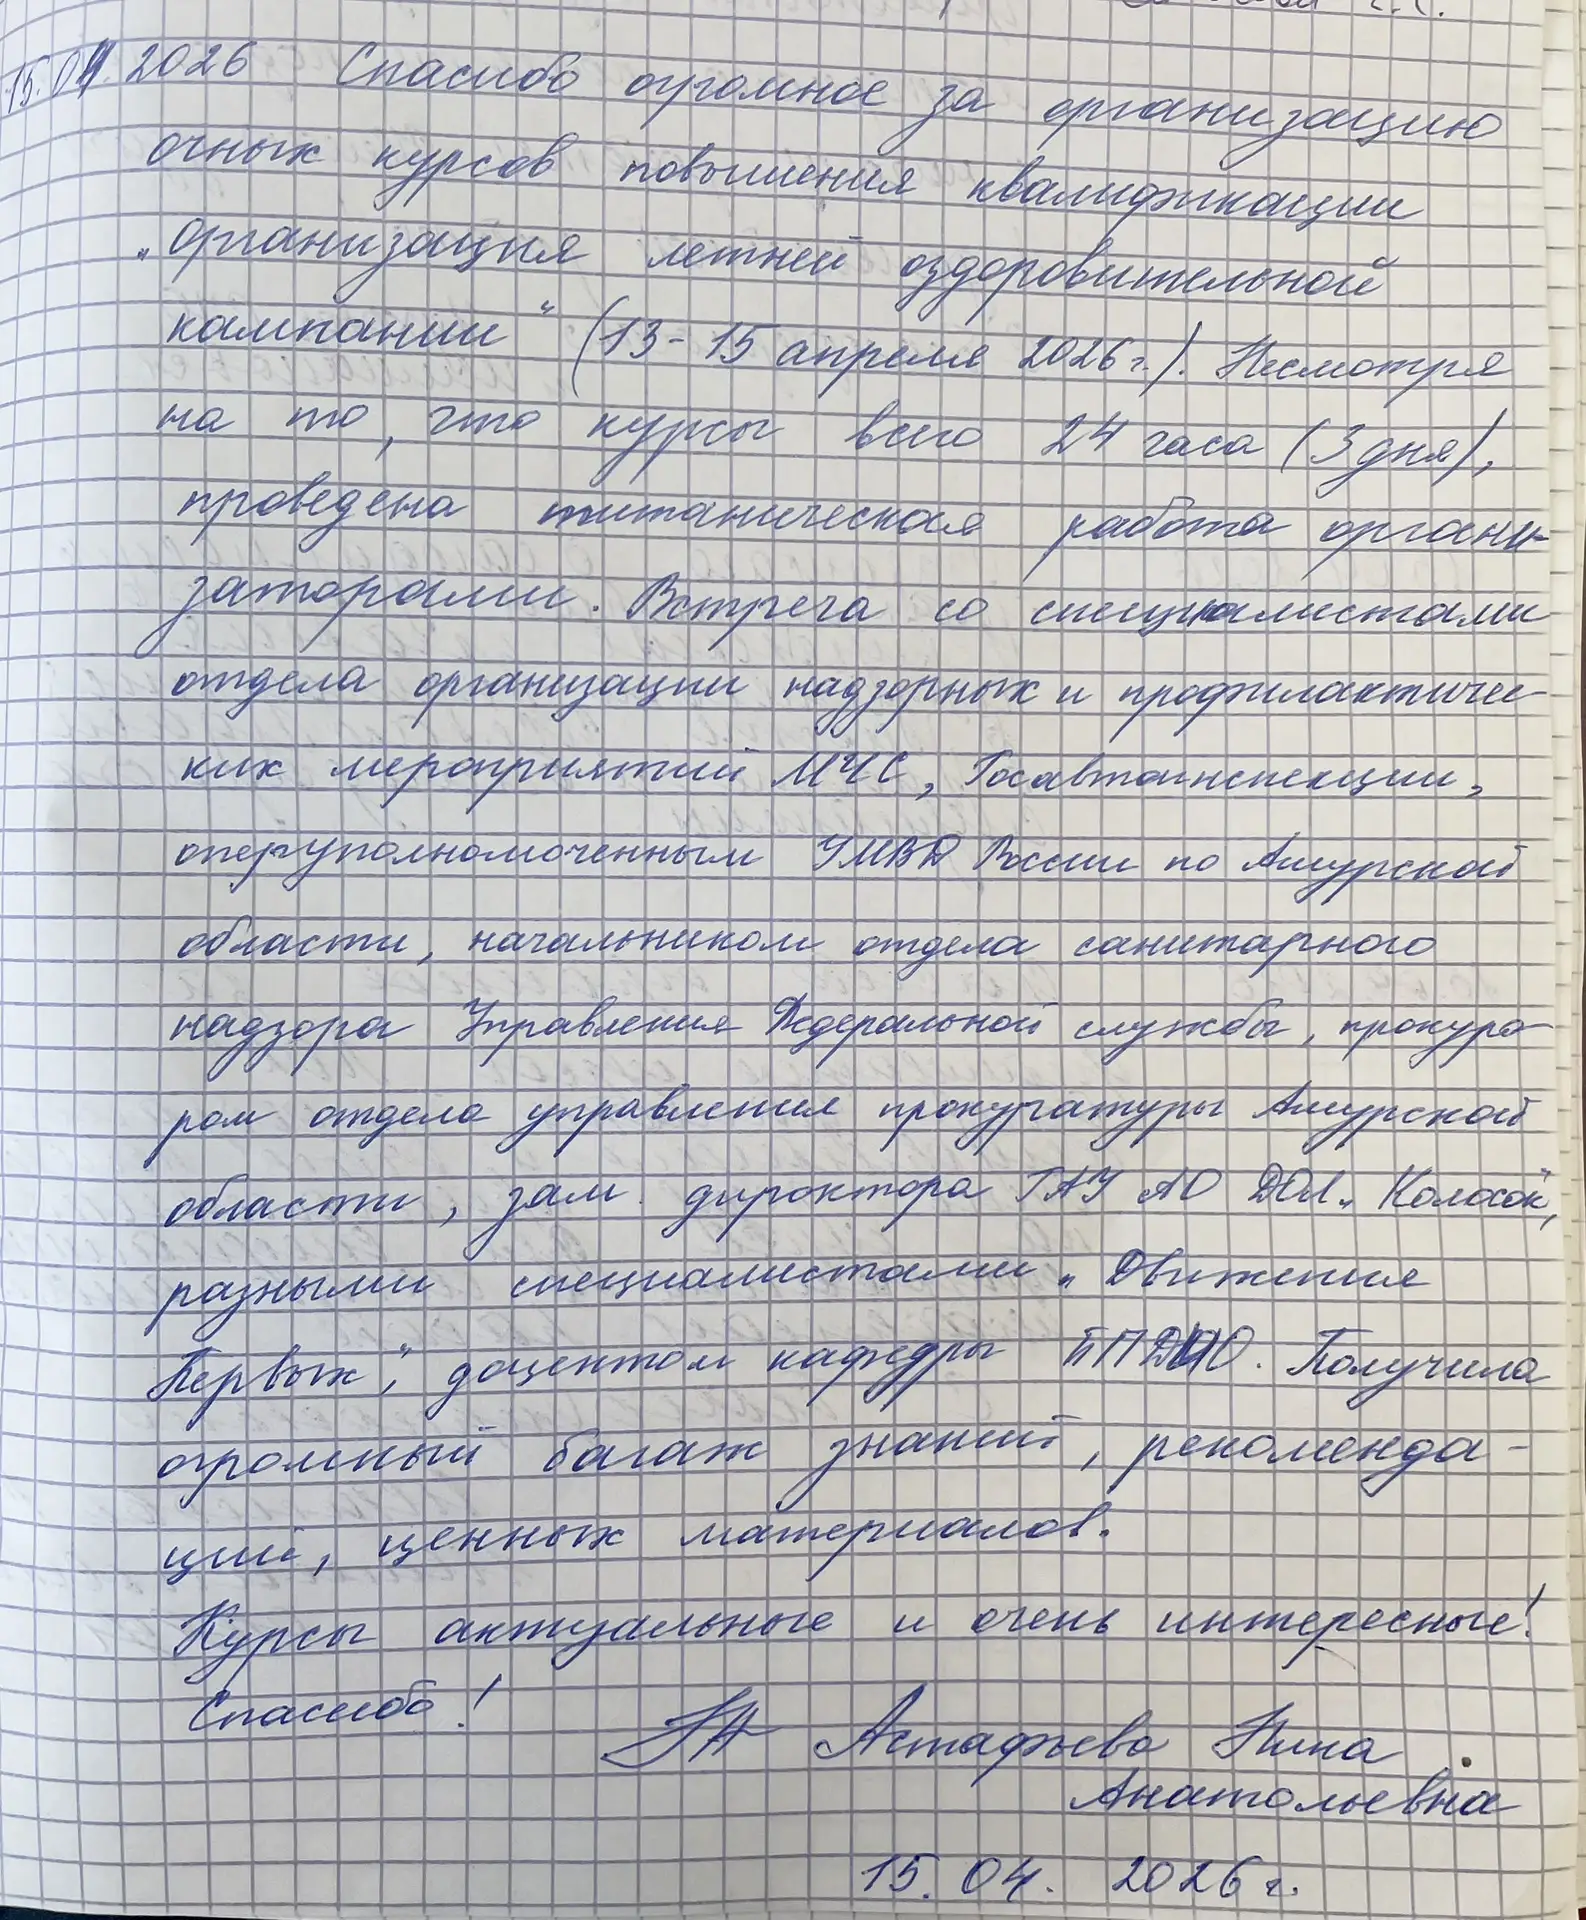 15.04.2026 Спасибо огромное за организацию
очных курсов повышения квалификации
„организация летней оздоровительной
кампании“ (13-15 апреля 2026 г.). Несмотря
на то, что курсы всего 24 часа (3 дня),
проведена титаническая работа органи-
заторами. Встреча со специалистами
отдела организации надзорных и профилактичес-
ких мероприятий МЧС, Госавтоинспекции,
оперуполномоченным УМВД России по Амурской
области, начальником отдела санитарного
надзора Управления Федеральной службы, прокуро-
ром отдела управления прокуратуры Амурской
области, зам. директора ГАУ АО ДОЛ „Колосок“,
разными специалистами „Движения
Первых“, доцентом кафедры Получила
огромный багаж знаний, рекоменда-
ций, ценных материалов.
Курсы актуальные и очень интересные!
Спасибо! Астафьева Нина
Анатольевна
15.04. 2026 г.